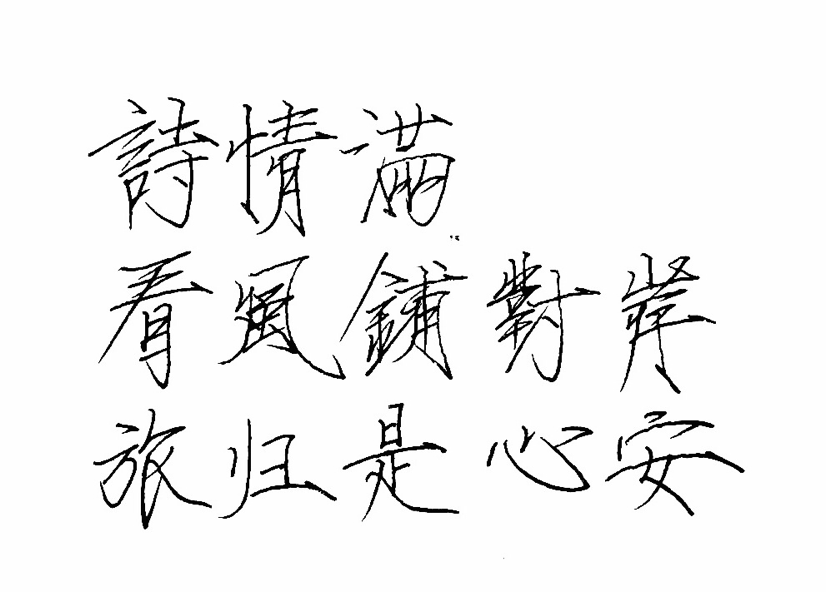 詩情滿
看風鋪對岸
旅归是心安